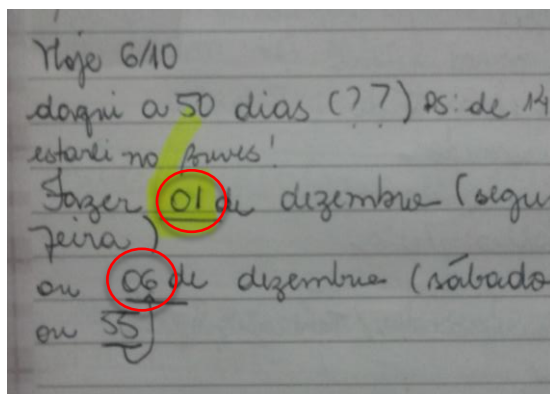 Hoje 6/10
daqui a 50 dias (??) PS: de 14
estarei no
Fazer 01 de dezembro (segu
feira)
ou 06 de dezembro (sábado
ou 55